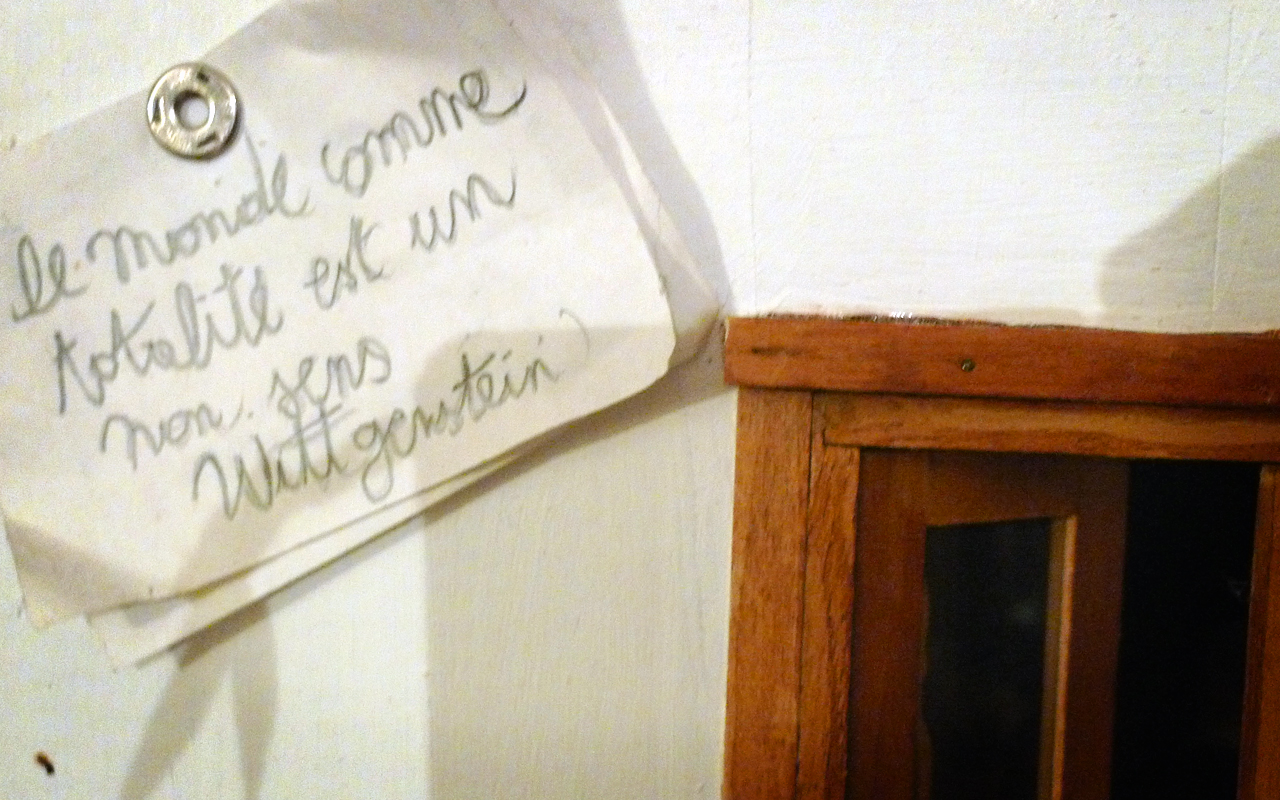 le monde comme
totalité est un
non. sens
Wittgenstein